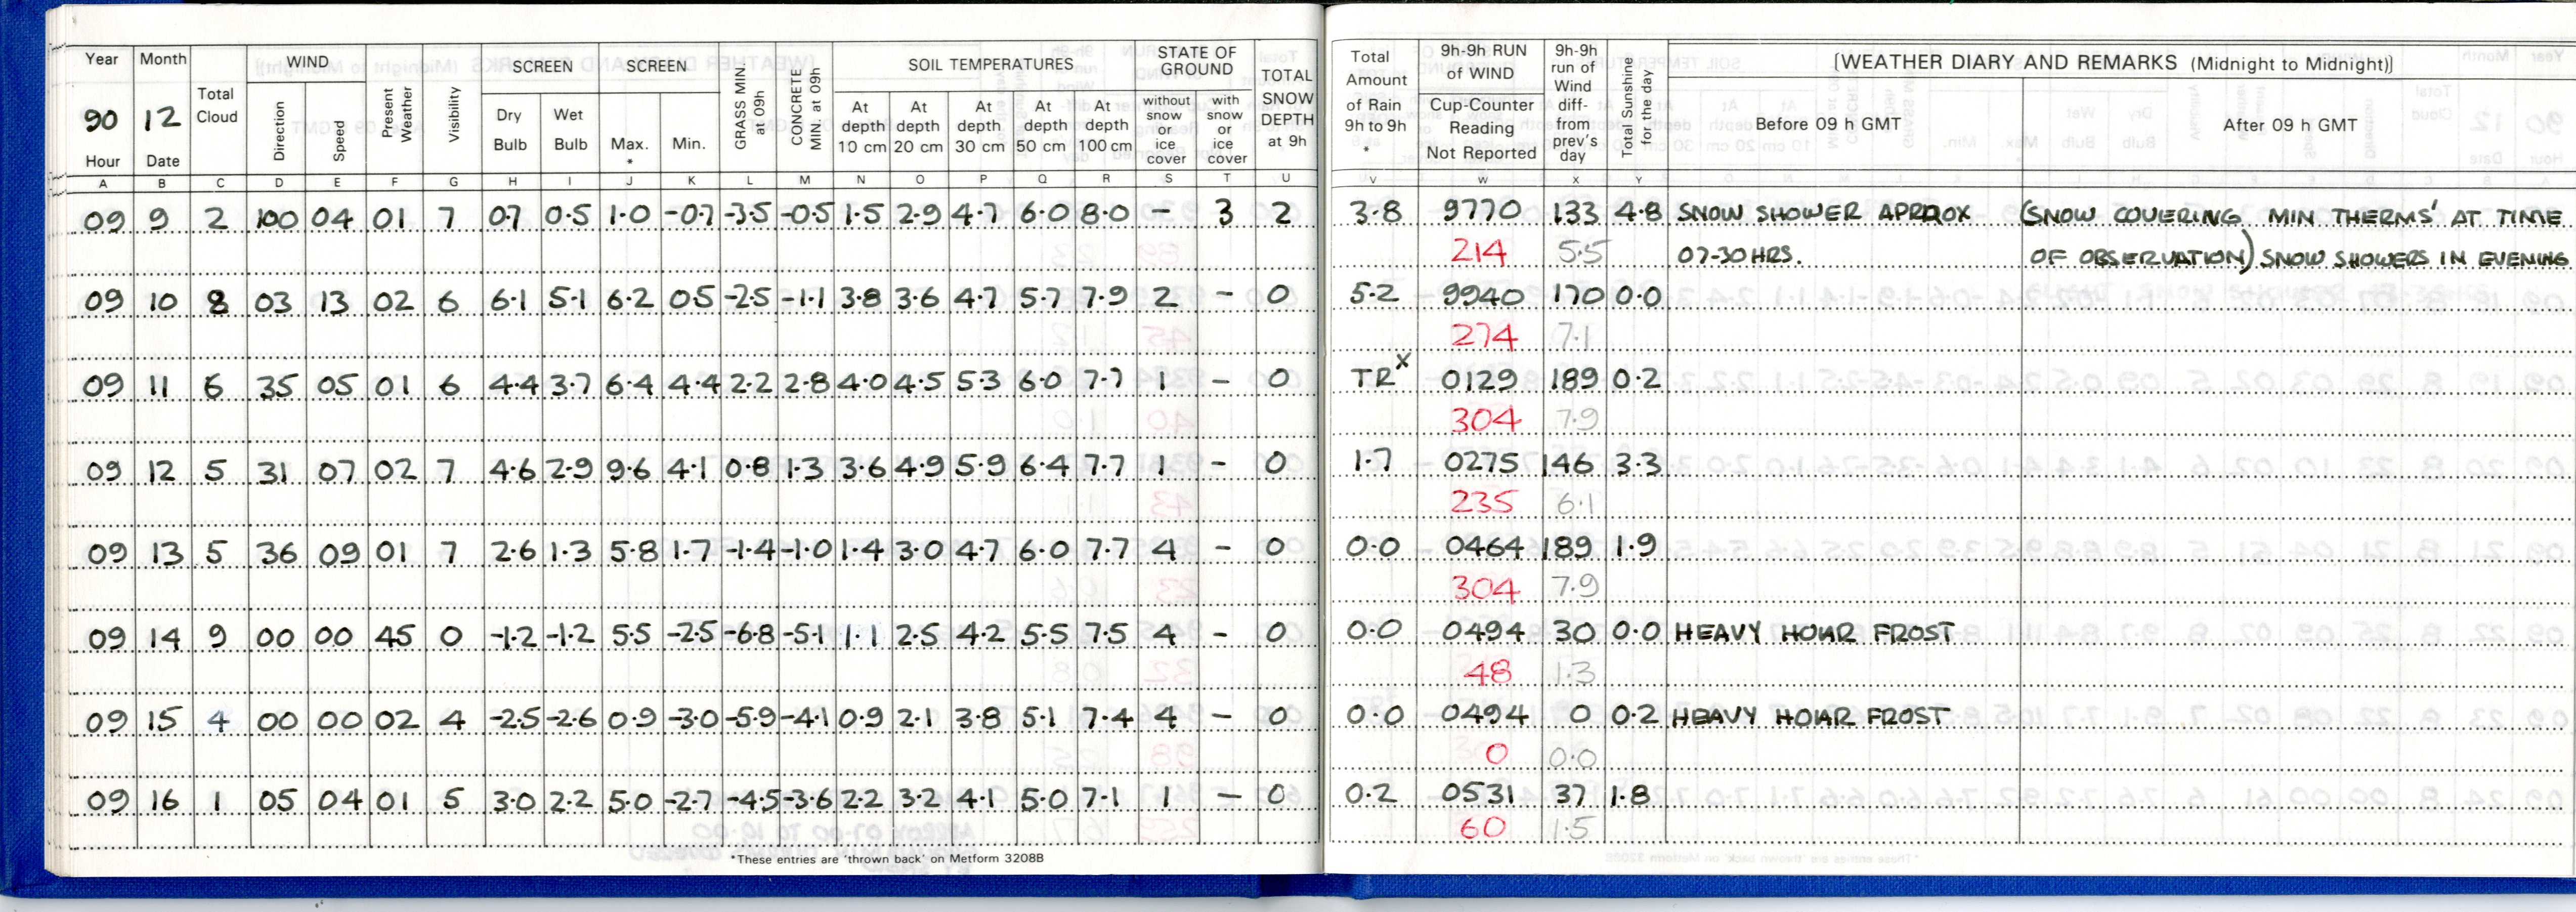 Year Month WIND SCREEN SCREEN GRASS MIN. at 09h CONCRETE MIN at 09h SOIL TEMPERATURES STATE OF GROUND TOTAL SNOW DEPTH at 9h
90 12 Total Cloud Direction Speed Present Weather Visibility Dry Bulb Wet Bulb Max. * Min. At depth 10 cm At depth 20 cm At depth 30 cm At depth 50 cm At depth 100 cm without snow or ice cover with snow or ice cover
Hour Date
A B C D E F G H I J K L M N O P Q R S T U
09 9 2 100 04 01 7 0.7 0.5 1.0 -0.7 -3.5 -0.5 1.5 2.9 4.7 6.0 8.0 - 3 2
09 10 8 03 13 02 6 6.1 5.1 6.2 0.5 -2.5 -1.1 3.8 3.6 4.7 5.7 7.9 2 - 0
09 11 6 35 05 01 6 4.4 3.7 6.4 4.4 2.2 2.8 4.0 4.5 5.3 6.0 7.7 1 - 0
09 12 5 31 07 02 7 4.6 2.9 9.6 4.1 0.8 1.3 3.6 4.9 5.9 6.4 7.7 1 - 0
09 13 5 36 09 01 7 2.6 1.3 5.8 1.7 -1.4 -1.0 1.4 3.0 4.7 6.0 7.7 4 - 0
09 14 9 00 00 45 0 -1.2 -1.2 5.5 -2.5 -6.8 -5.1 1.1 2.5 4.2 5.5 7.5 4 - 0
09 15 4 00 00 02 4 -2.5 -2.6 0.9 -3.0 -5.9 -4.1 0.9 2.1 3.8 5.1 7.4 4 - 0
09 16 1 05 04 01 5 3.0 2.2 5.0 -2.7 -4.5 -3.6 2.2 3.2 4.1 5.0 7.1 1 - 0
*These entries are 'thrown back' on Metform 3208B
Total Amount of Rain 9h to 9h * 9h-9h RUN of WIND Cup-Counter Reading Not Reported 9h-9h run of Wind diff- from prev's day Total Sunshine for the day [WEATHER DIARY AND REMARKS (Midnight to Midnight)]
Before 09 h GMT After 09 h GMT
V W X Y
3.8 9770 133 4.8 SNOW SHOWER APPROX (SNOW COVERING MIN THERMS' AT TIME
214 5.5 07-30 HRS. OF OBSERVATION) SNOW SHOWERS IN EVENING
5.2 9940 170 0.0
274 7.1
TR x 0129 189 0.2
304 7.9
1.7 0275 146 3.3
235 6.1
0.0 0464 189 1.9
304 7.9
0.0 0494 30 0.0 HEAVY HOAR FROST
48 1.3
0.0 0494 0 0.2 HEAVY HOAR FROST
0 0.0
0.2 0531 37 1.8
60 1.5